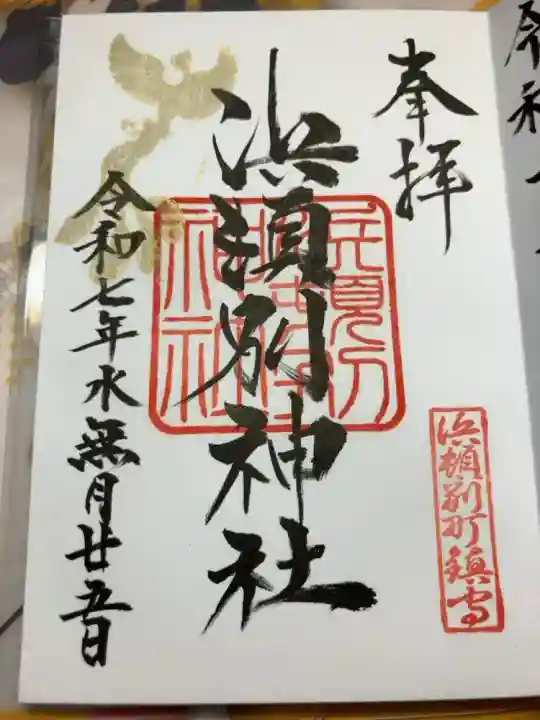 奉拝
浜頓別町鎮守
浜頓別神社
令和七年水無月廿五日
令和